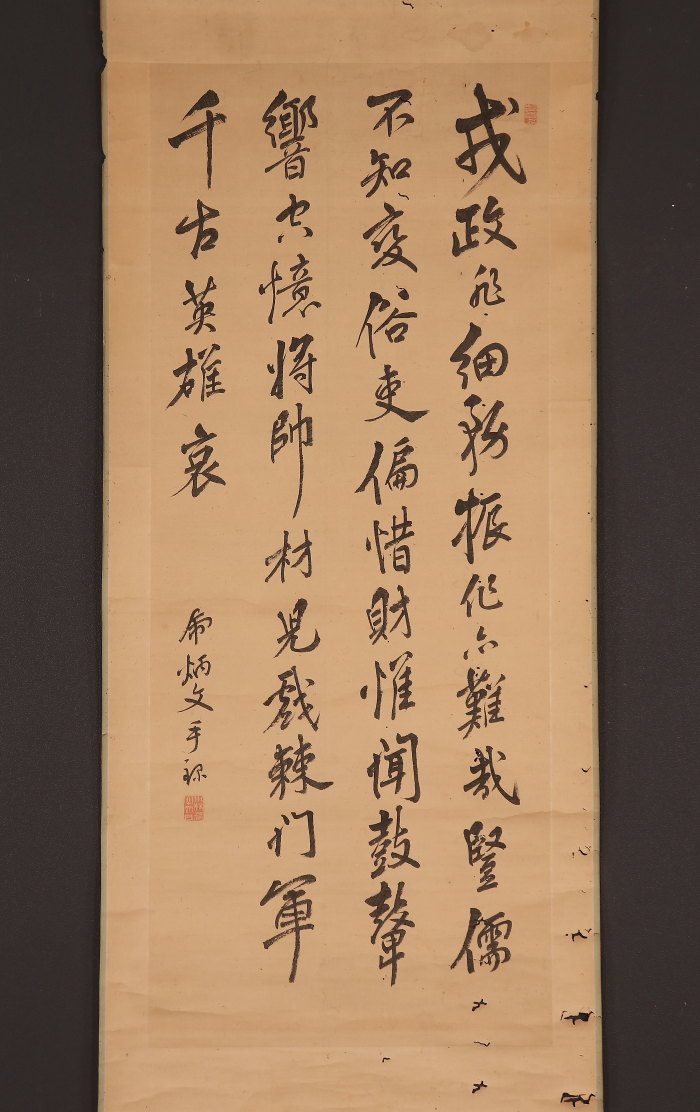 戎政非細務振作亦難哉豎儒
不知変俗吏偏惜財惟聞鼓鼙
響空憶將帥材児戯棘门軍
千古英雄哀
炳文手